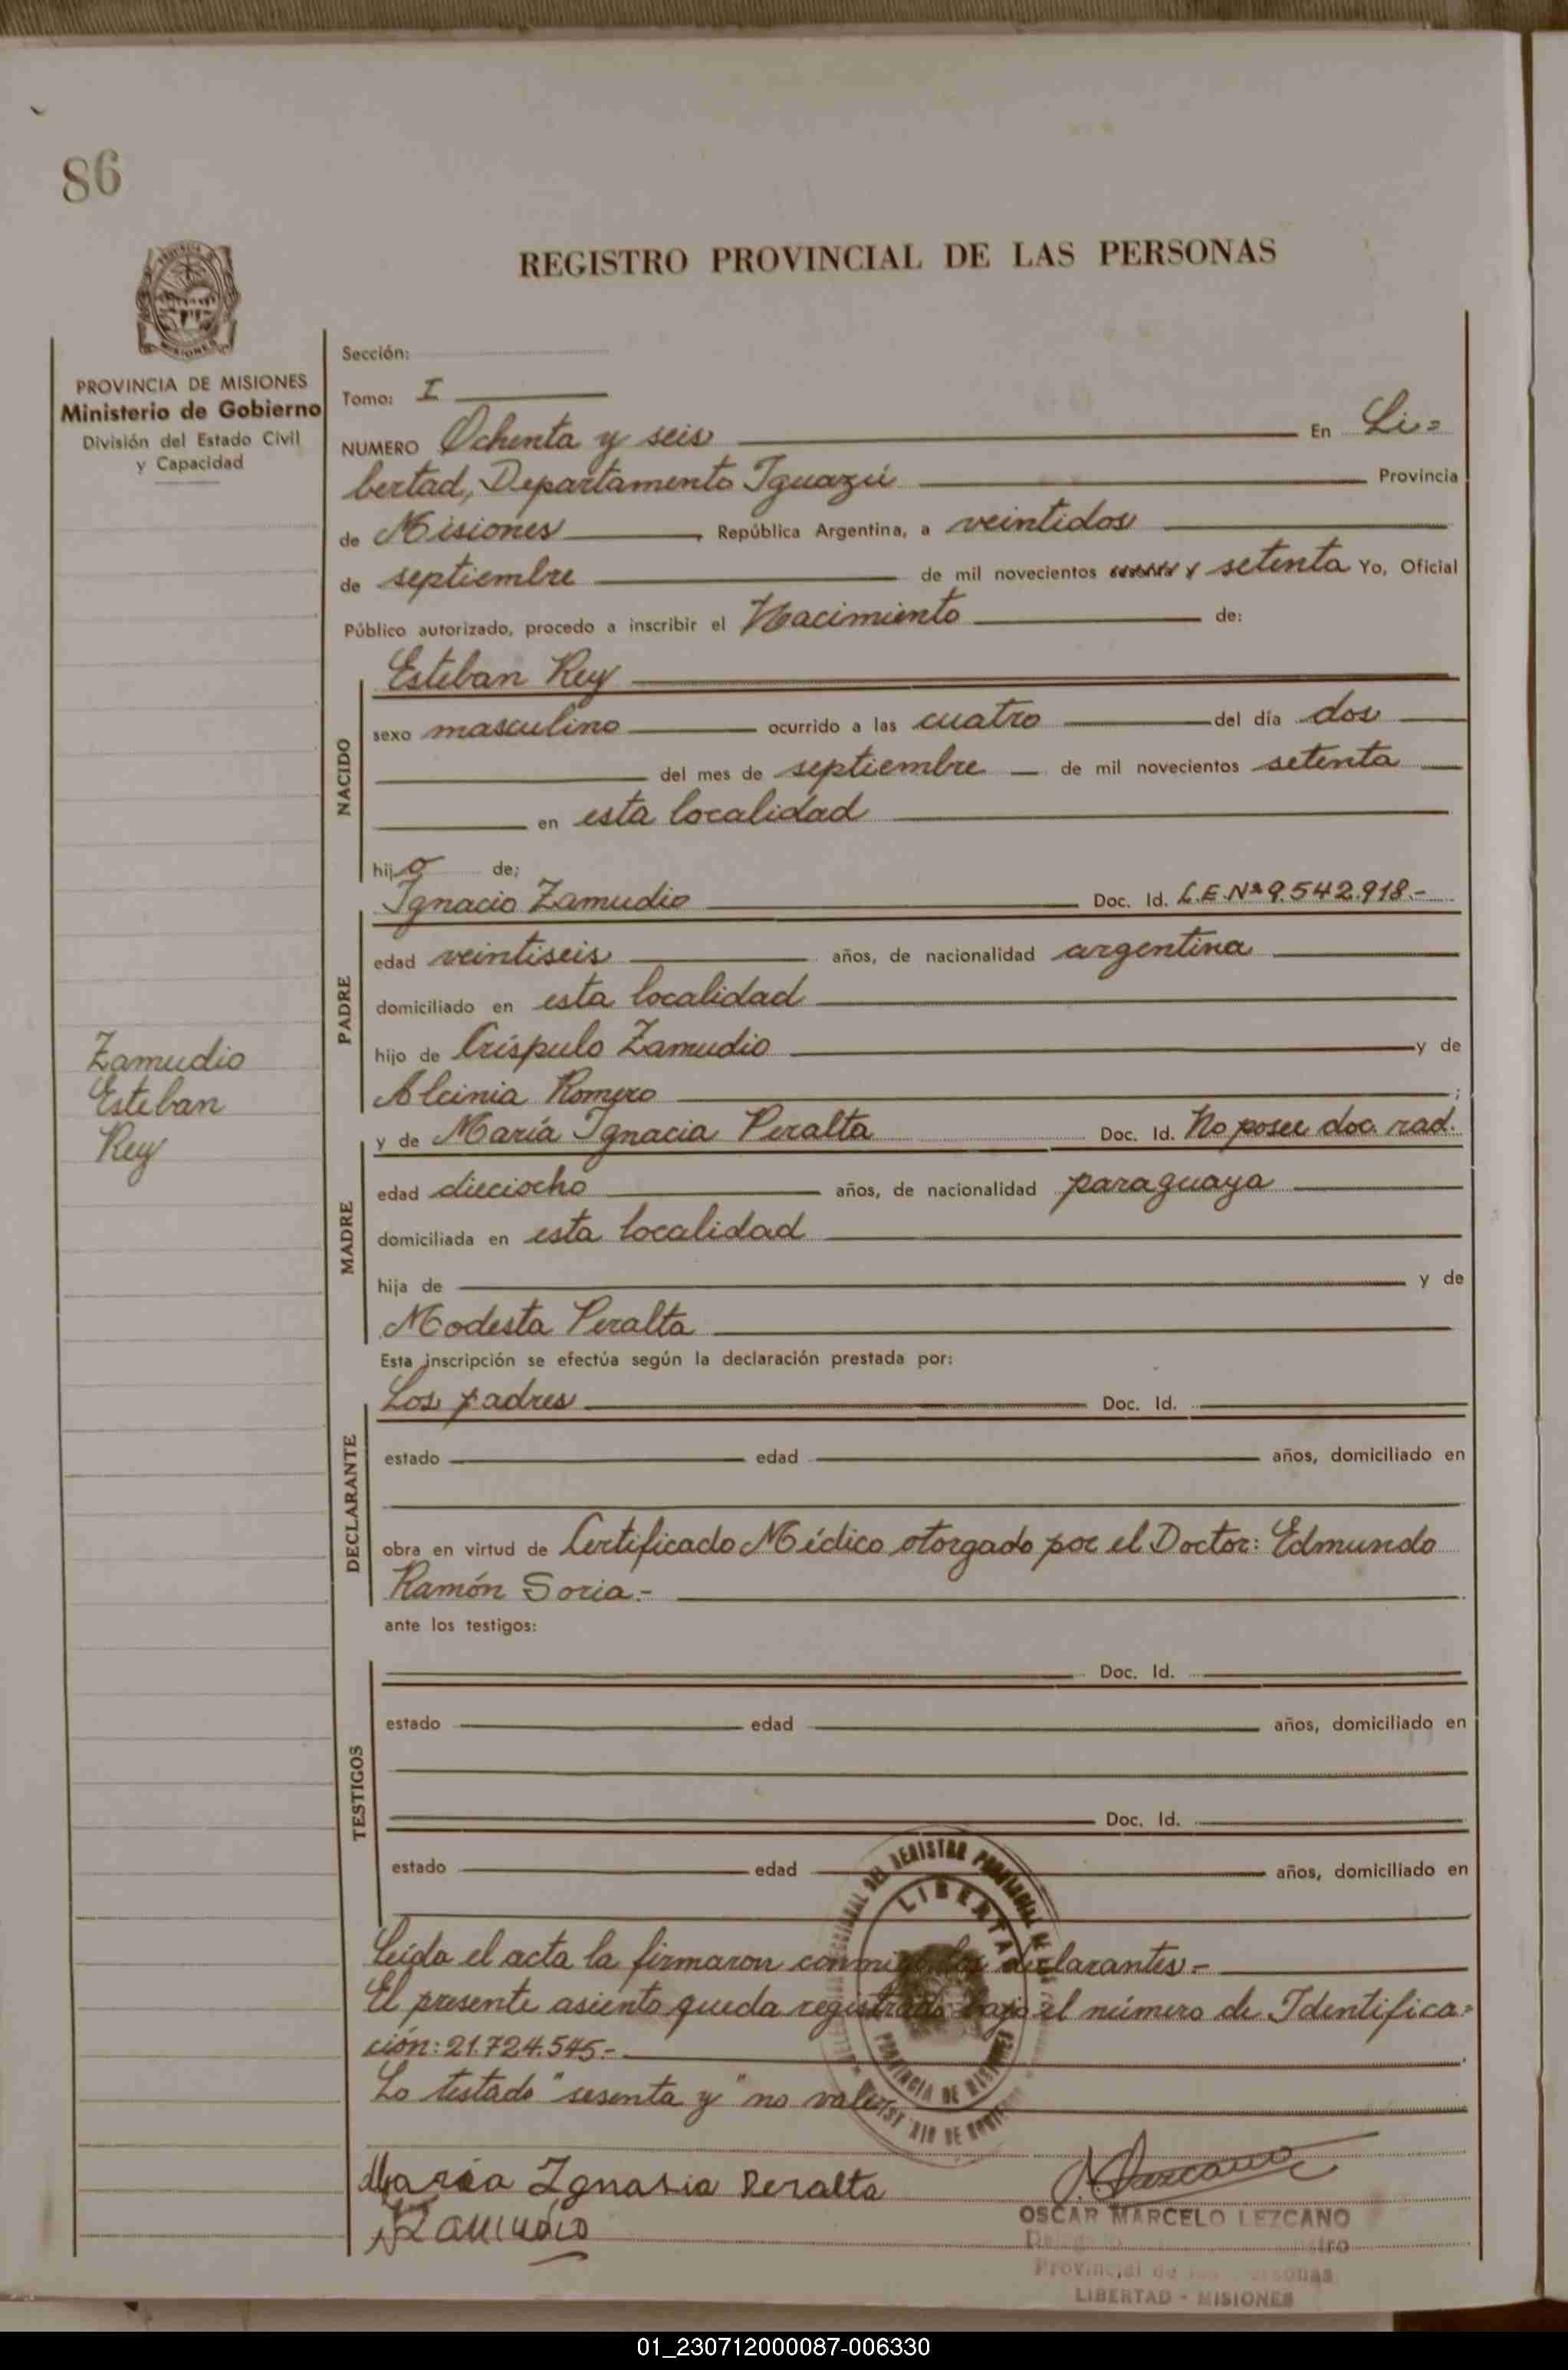 86
REGISTRO PROVINCIAL DE LAS PERSONAS
MISIONES
PROVINCIA DE MISIONES
Ministerio de Gobierno
División del Estado Civil
y Capacidad
Sección:
Tomo: I
NUMERO Ochenta y seis En Li=
bertad, Departamento Iguazú Provincia
de Misiones República Argentina, a veintidos
de septiembre de mil novecientos setenta Yo, Oficial
Público autorizado, procedo a inscribir el Nacimiento de:
NACIDO
Esteban Rey
sexo masculino ocurrido a las cuatro del día dos
del mes de septiembre de mil novecientos setenta
en esta localidad
hijo de;
PADRE
Ignacio Zamudio Doc. Id. L.E.Nº 9.542.918.-
edad veintiseis años, de nacionalidad argentina
domiciliado en esta localidad
hijo de Críspulo Zamudio y de
Alcinia Romero ;
Zamudio
Esteban
Rey
MADRE
y de María Ignacia Peralta Doc. Id. No posee doc. rad.
edad dieciocho años, de nacionalidad paraguaya
domiciliada en esta localidad
hija de y de
Modesta Peralta
Esta inscripción se efectúa según la declaración prestada por:
DECLARANTE
Los padres Doc. Id.
estado edad años, domiciliado en
obra en virtud de Certificado Médico otorgado por el Doctor: Edmundo
Ramón Soria.-
ante los testigos:
TESTIGOS
Doc. Id.
estado edad años, domiciliado en
Doc. Id.
estado edad años, domiciliado en
Leída el acta la firmaron conmigo los declarantes.-
El presente asiento queda registrado bajo el número de Identifica=
ción: 21.724.545.-
Lo testado "sesenta y" no vale
DEL REGISTRO PROVINCIAL
LIBERTAD
PROVINCIA DE MISIONES
María Ignasia Peralta
Zamudio
Lezcano
OSCAR MARCELO LEZCANO
Provincial de las Personas
LIBERTAD - MISIONES
01_230712000087-006330